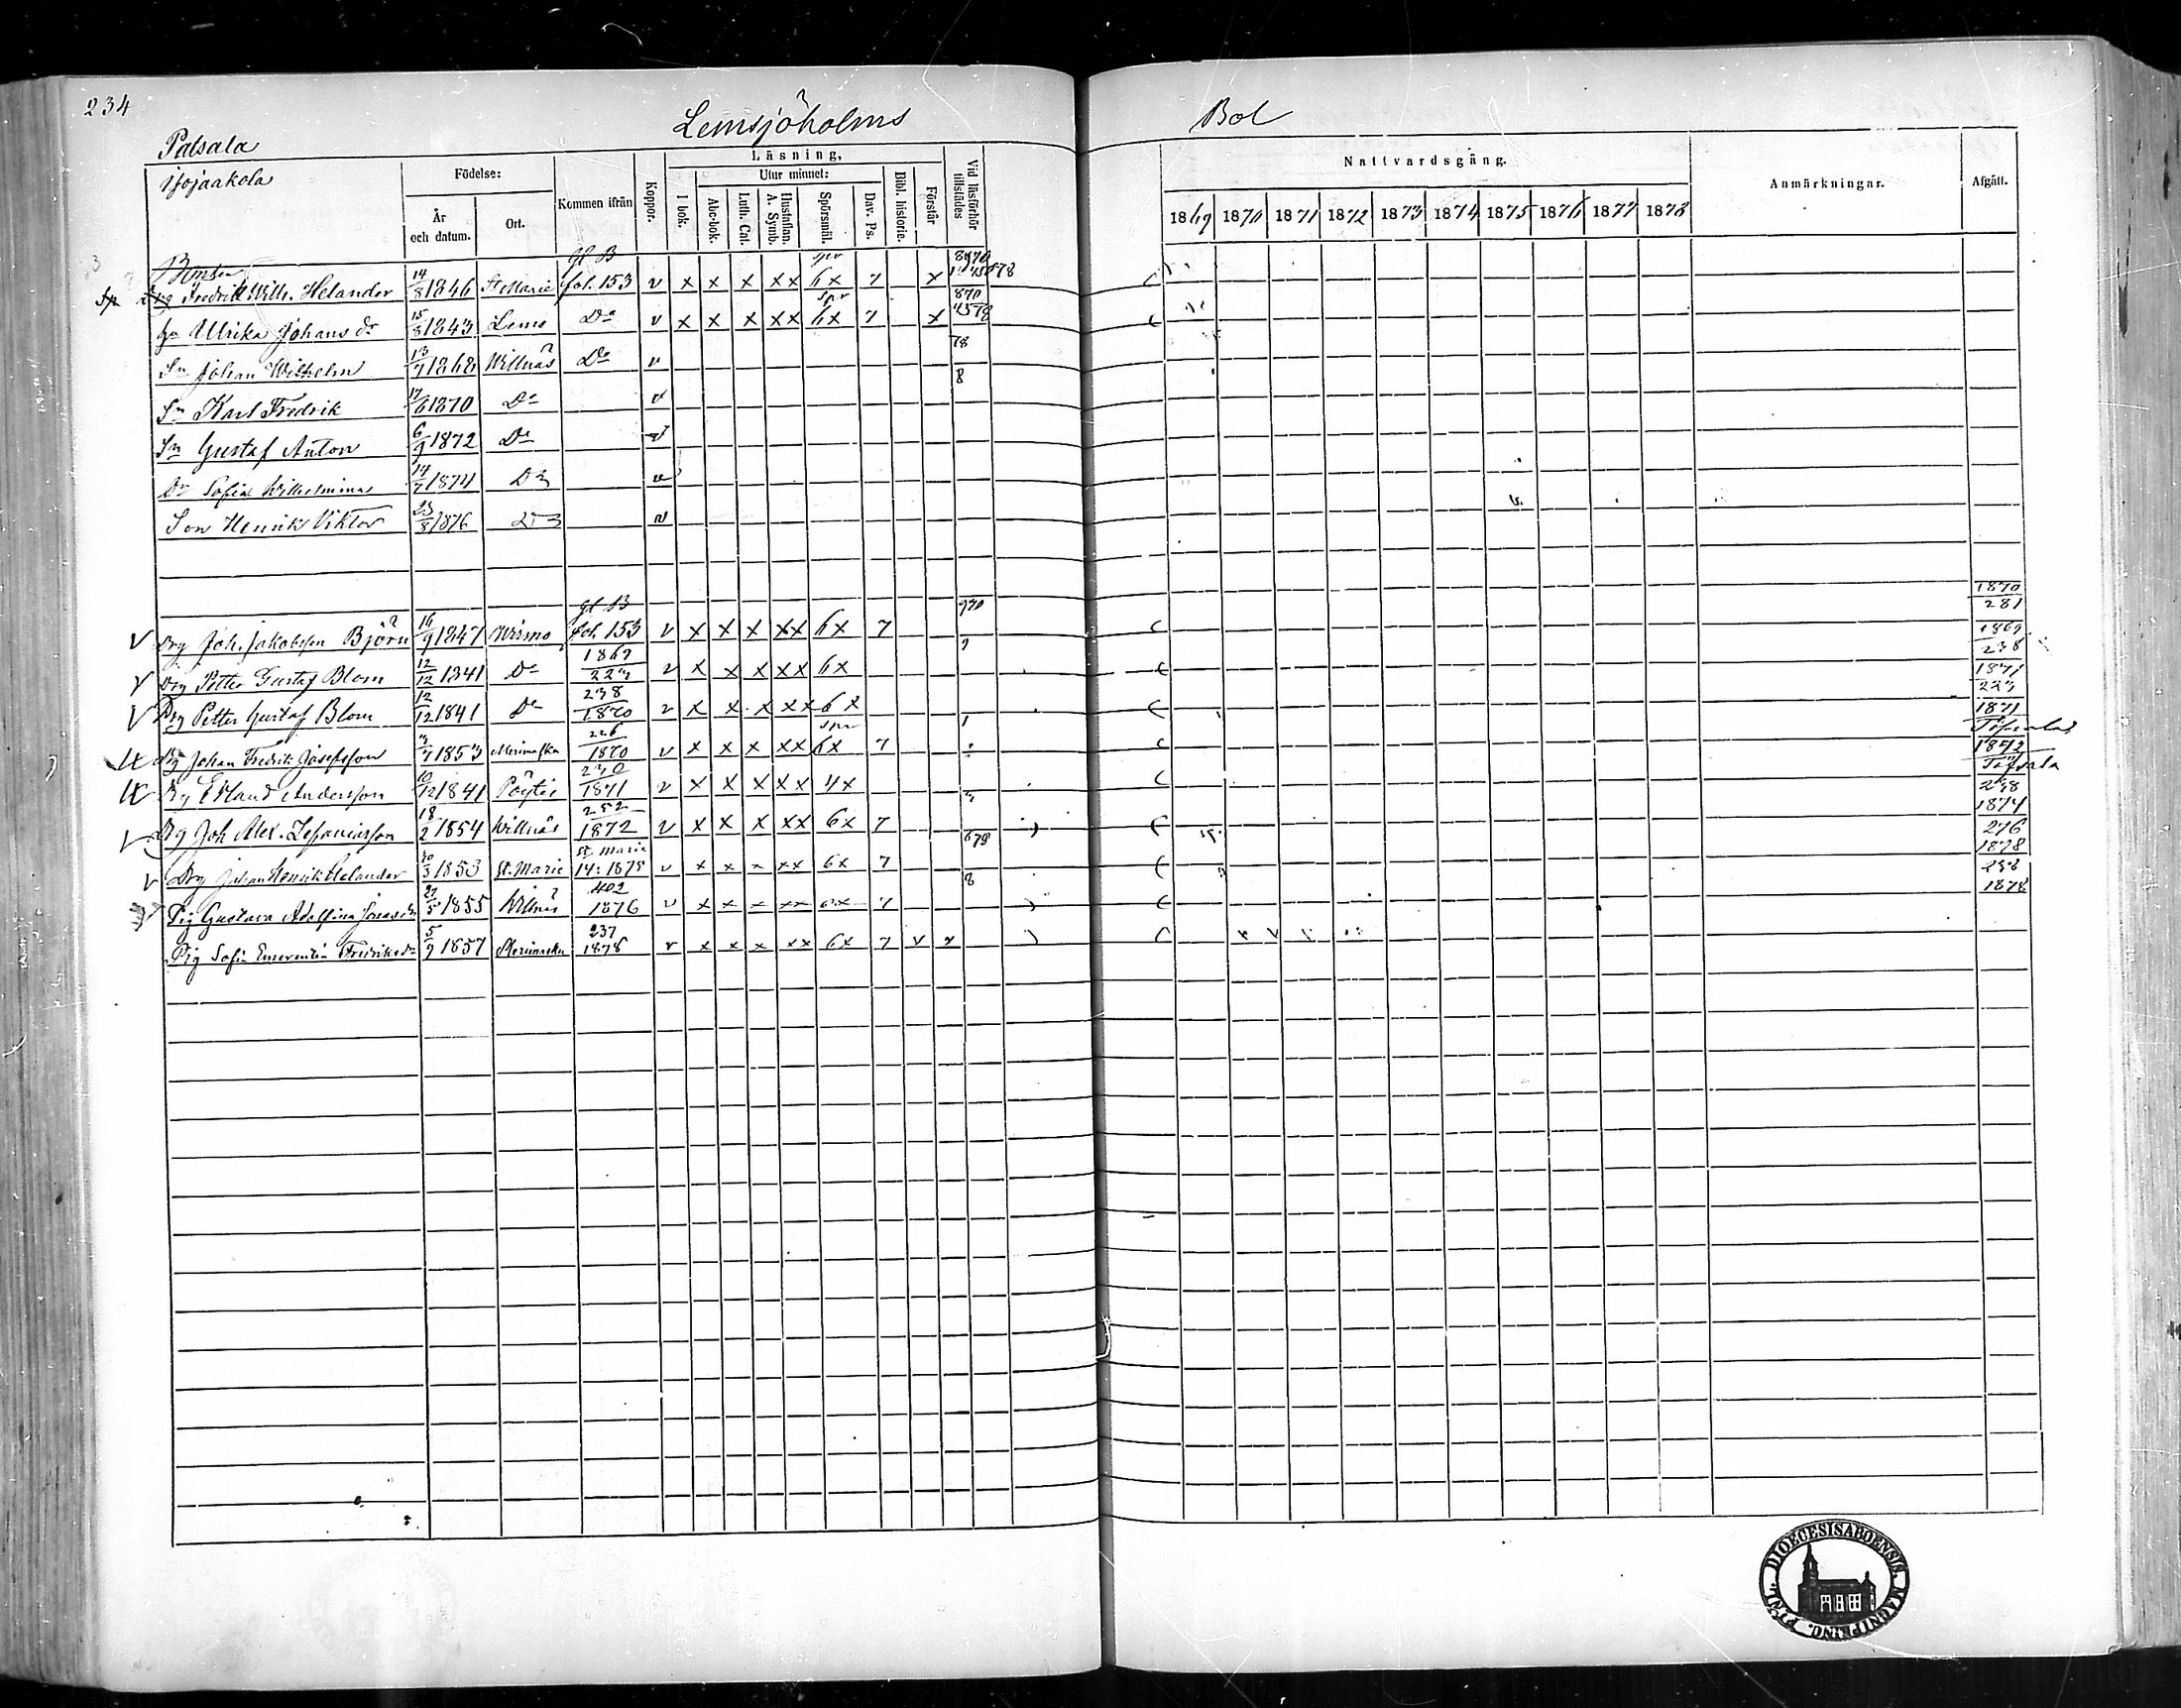 234
Lemsjöholms
Bol
Palsala
Isojaakola
Födelse:
År och datum.
Ort.
Kommen ifrån
Koppor.
Läsning.
I bok.
Utur minnet:
Abc-bok.
Luth. Cat.
Hustaflan. A. Symb.
Spörsmål.
Dav. Ps.
Bibl. historie.
Förstår
Vid läsförhör tillstädes
Nattvardsgång.
1869 1870 1871 1872 1873 1874 1875 1876 1877 1878
Anmärkningar.
Afgått.
Fredrik Wilh. Helander 14/8 1846 St Marie gl B fol. 153 v x x x xx 6x 7 x
Hu Ulrika Johansdr 15/8 1843 Lemo Do v x x x xx 6x 7 x
Sn Johan Wilhelm 13/7 1868 Willnäs Do v 78
Sn Karl Fredrik 17/6 1870 Do v 8
Sn Gustaf Anton 6/9 1872 Do v
Dr Sofia Wilhelmina 14/7 1874 Do v
Son Henrik Viktor 23/8 1876 Do v
Drg Joh. Jakobsson Björn 16/9 1847 Wirmo gl B fol. 153 v x x x xx 6x 7 970 1870 281
Drg Petter Gustaf Blom 12/12 1841 Do 1869 223 v x x x xx 6x 1869 238
Drg Petter Gustaf Blom 12/12 1841 Do 238 1870 v x x x xx 6x 1871 223
Drg Johan Fredrik Josefsson 3/7 1853 Merimasku 226 1870 v x x x xx 6x 7 1871 Töfsala
Drg Erland Andersson 10/12 1841 Pöytis 230 1871 v x x x xx 4x 1872 Töfsala
Drg Joh Alex. Zefaniasson 18/2 1854 Willnäs 252 1872 v x x x xx 6x 7 238 1874
Drg Johan Henrik Helander 20/3 1853 St. Marie St Marie 14: 1875 v x x x xx 6x 7 678 276 1878
Pig Gustava Adolfina 27/5 1855 Willnäs 402 1876 v x x x xx 6x 7 8 1878
Pig Sofia Emerentia Fredriksdr 5/9 1857 Merimasku 237 1878 v x x x xx 6x 7 v x
DIOECESIS ABOENSIS. MAGNI PRINC. FINL.